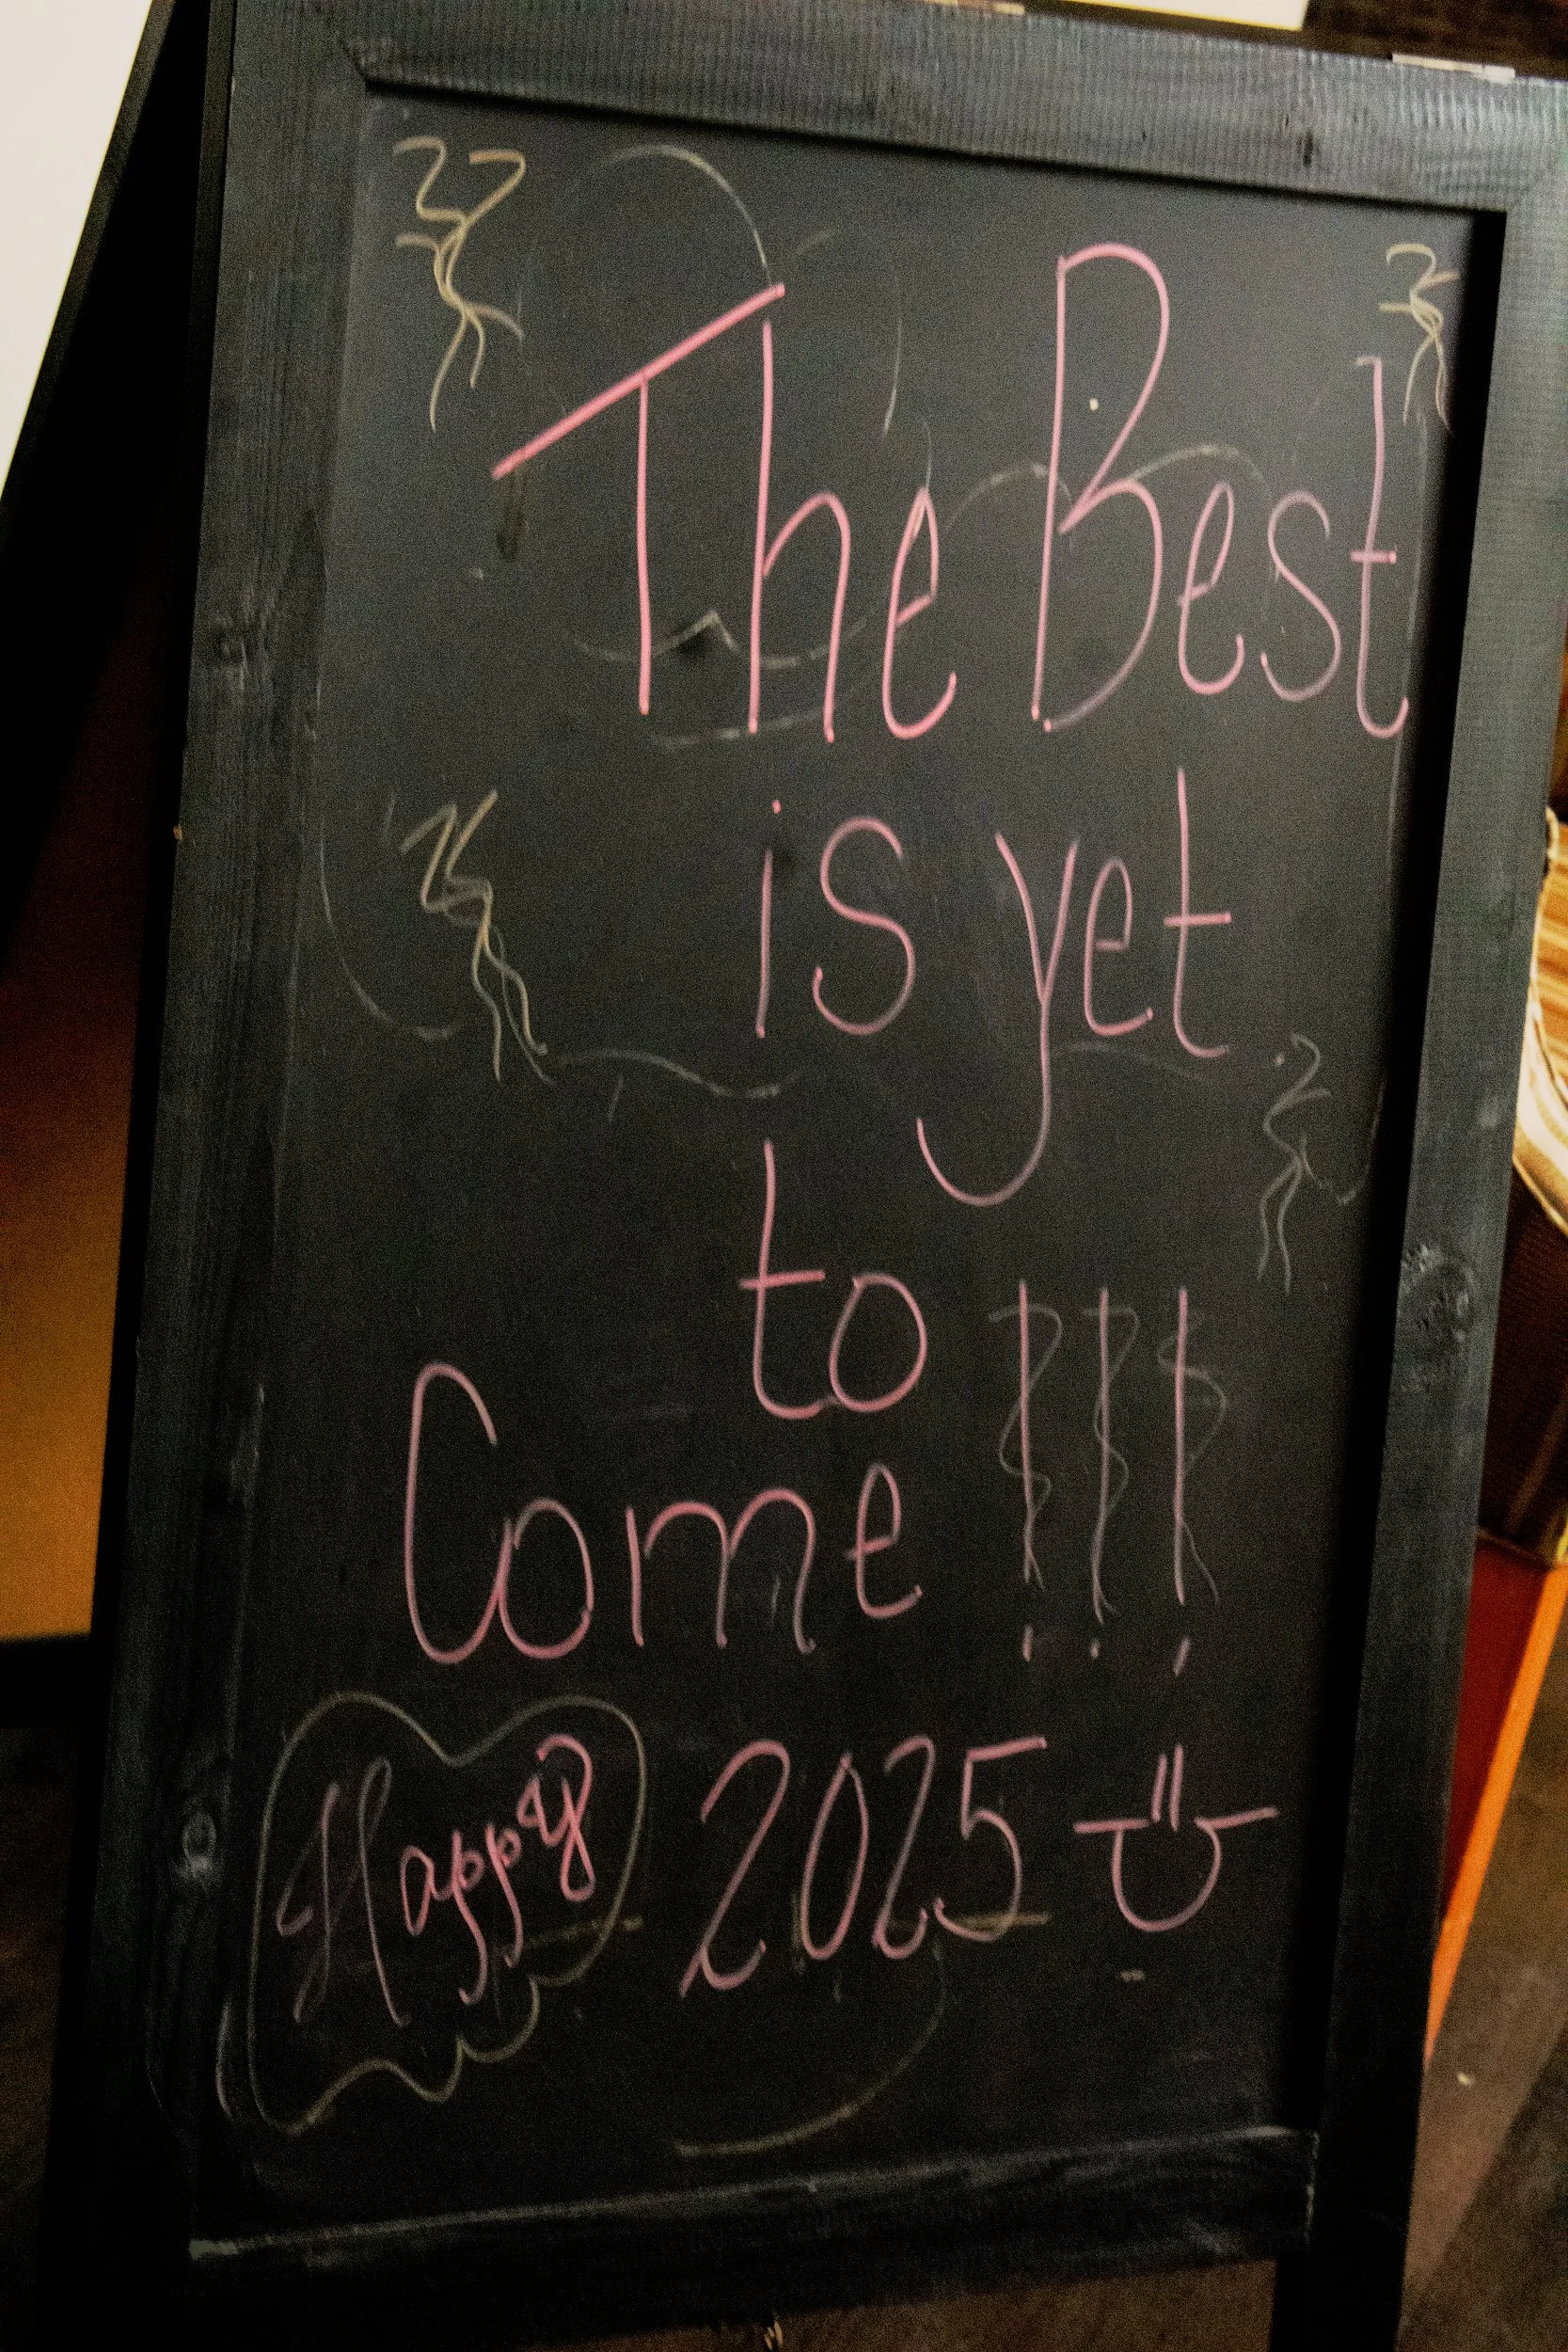 The Best
is yet
to
Come !!!
Happy 2025